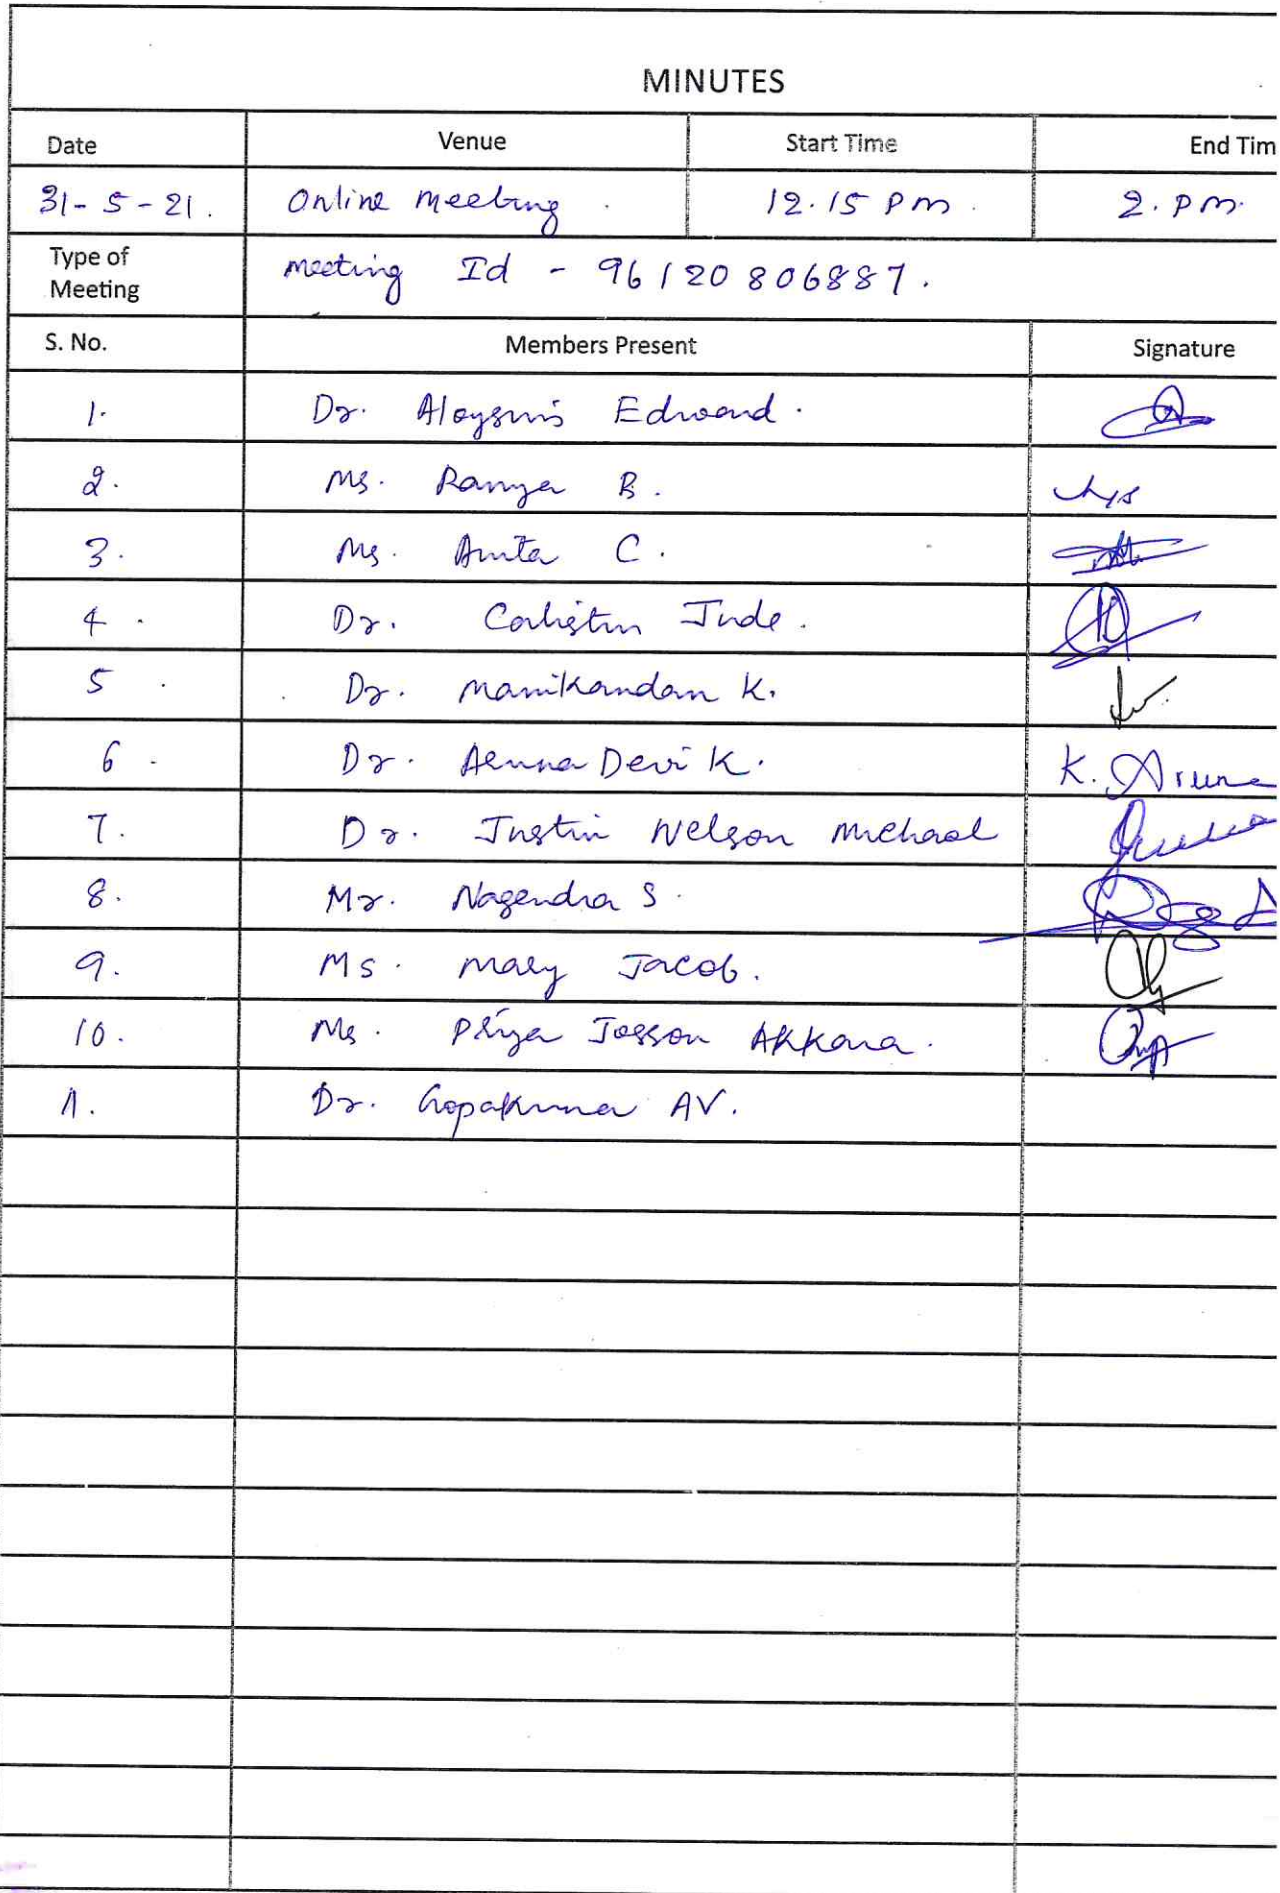 MINUTES
Date Venue Start Time End Tim
31-5-21. Online meeting 12.15 pm. 2. pm.
Type of
Meeting
meeting Id - 96120806887.
S. No. Members Present Signature
1. Dr. Aloysius Edward.
2. Ms. Ramya B.
3. Ms. Anita C.
4. Dr. Calistus Jude.
5. Dr. Manikandan K.
6. Dr. Aruna Devi K. K. Aruna
7. Dr. Justin Nelson Michael
8. Mr. Nagendra S.
9. Ms. Mary Jacob.
10. Ms. Priya Josson Akkara.
11. Dr. Gopakumar AV.